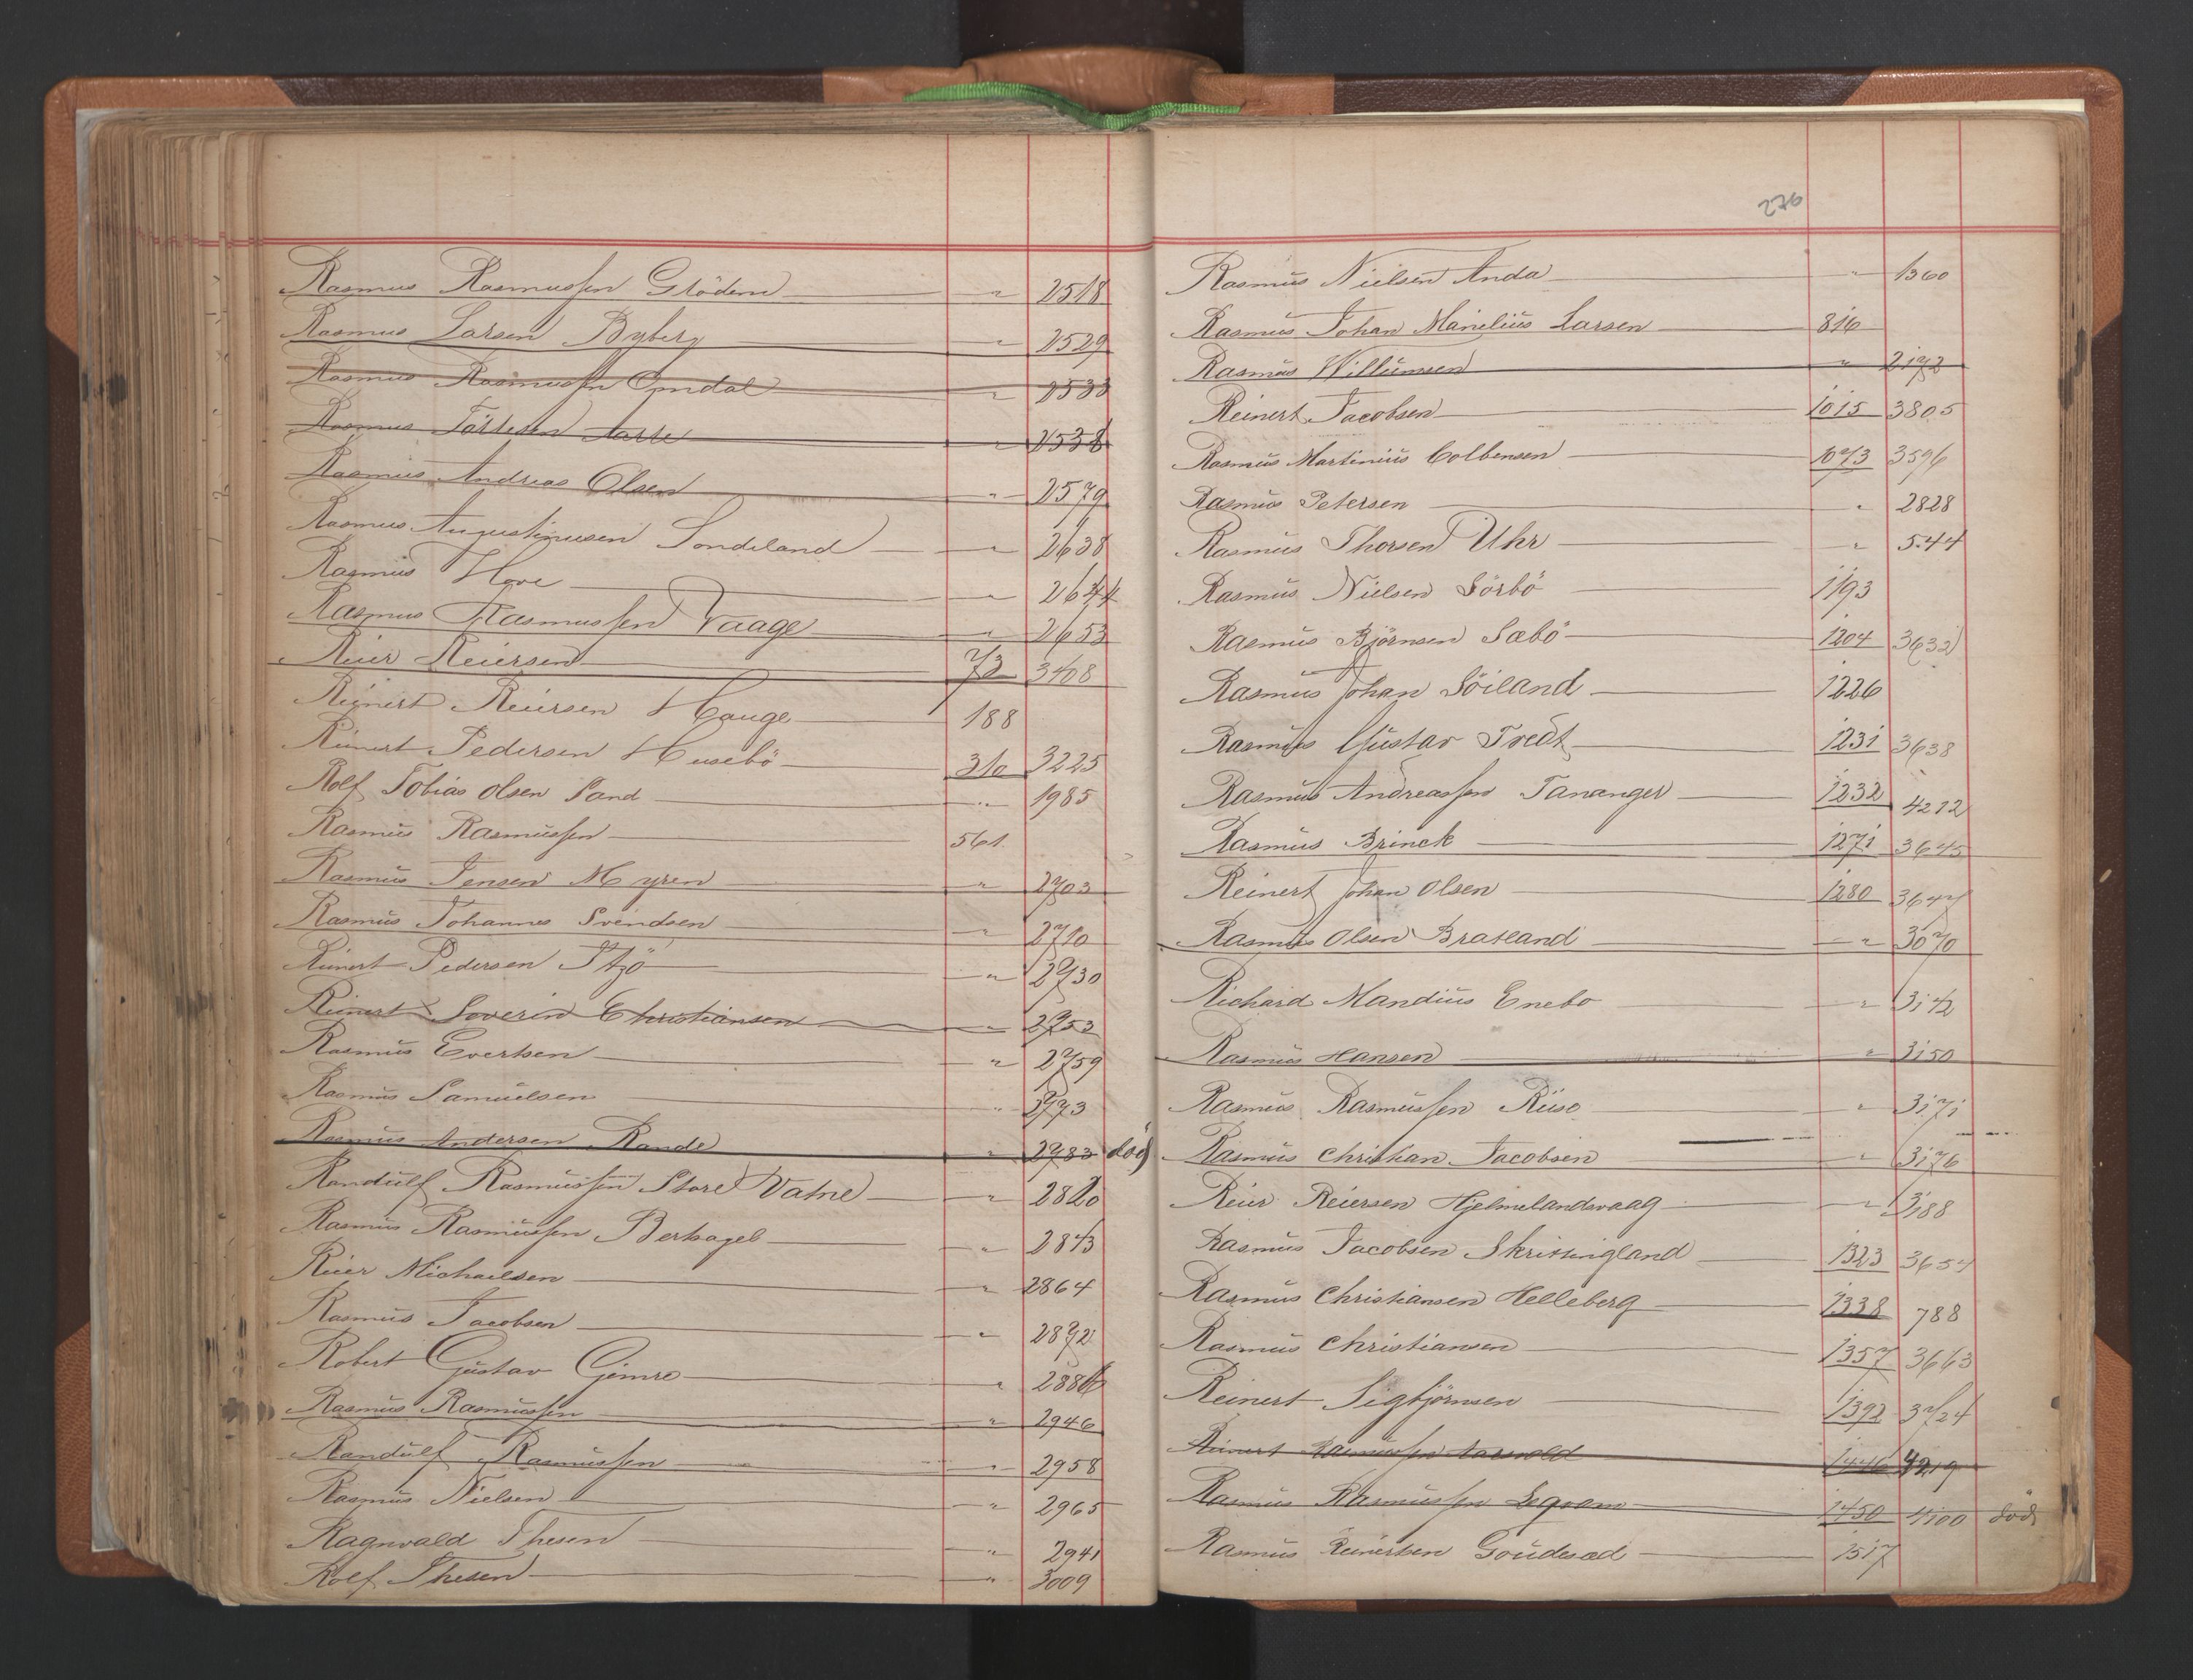 Rasmus Rasmussen Glödem " 2518
Rasmus Larsen Byberg " 2529
Rasmus Rasmussen Omdal " 2533
Rasmus Törresen Aarre " 2538
Rasmus Andreas Olsen " 2579
Rasmus Augustinusen Sondeland " 2638
Rasmus Hove " 2644
Rasmus Rasmussen Vaage " 2653
Reier Reiersen 73 3408
Reinert Reiersen Hauge 188
Reinert Pedersen Husebö 310 3225
Rolf Tobias Olsen Sand " 1985
Rasmus Rasmussen 561
Rasmus Jensen Myren " 2703
Rasmus Johannes Svendsen " 2710
Reinert Pedersen " 2730
Reinert Soverin Christiansen " 2753
Rasmus Evertsen " 2759
Rasmus Samuelsen " 2773
Rasmus Andersen Rande " 2783 död
Randulf Rasmussen Store Vatne " 2820
Rasmus Rasmussen Bertsagel " 2843
Reier Michaelsen " 2864
Rasmus Jacobsen " 2872
Robert Gustav Gimre " 2886
Rasmus Rasmussen " 2946
Randulf Rasmussen " 2958
Rasmus Nielsen " 2965
Ragnvald Thesen " 2941
Rolf Thesen " 3009
270
Rasmus Nielsen Anda " 1360
Rasmus Johan Marielius Larsen 816
Rasmus Willumsen " 2172
Reinert Jacobsen 1015 3805
Rasmus Martinius Colbensen 1073 3596
Rasmus Petersen " 2828
Rasmus Thorsen Uhr " 544
Rasmus Nielsen Sörbö 1193
Rasmus Björnsen Sæbö 1204 3632
Rasmus Johan Söiland 1226
Rasmus Gustav Tvedt 1231 3638
Rasmus Andreassen Tananger 1232 4212
Rasmus Brinck 1271 3645
Reinert Johan Olsen 1280 3647
Rasmus Olsen Bratland " 3070
Richard Mandius Enebo " 3142
Rasmus Hansen " 3150
Rasmus Rasmussen Riise " 3171
Rasmus Christian Jacobsen " 3176
Reier Reiersen Hjelmelandsvaag " 3188
Rasmus Jacobsen Skrissingland 1323 3654
Rasmus Christiansen Helleberg 1338 788
Rasmus Christiansen 1357 3663
Reinert Sigbjörnsen 1392 3724
Reinert Rasmussen Aarvold 1446 4219
Rasmus Rasmussen Legvam 1450 4100 död
Rasmus Reinertsen Goudesad 1517